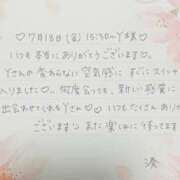 ♡7月18日(金) 15:30〜Y様♡
いつも本当にありがとうございます♡。
Yさんの変わらない空気感に すぐにスイッチ
入りました♡… 何度会っても、新しい感覚に
出会わせてくれるYさん♡ いつもたくさんありがとう
ございます♡ また楽しみに待ってます
凛